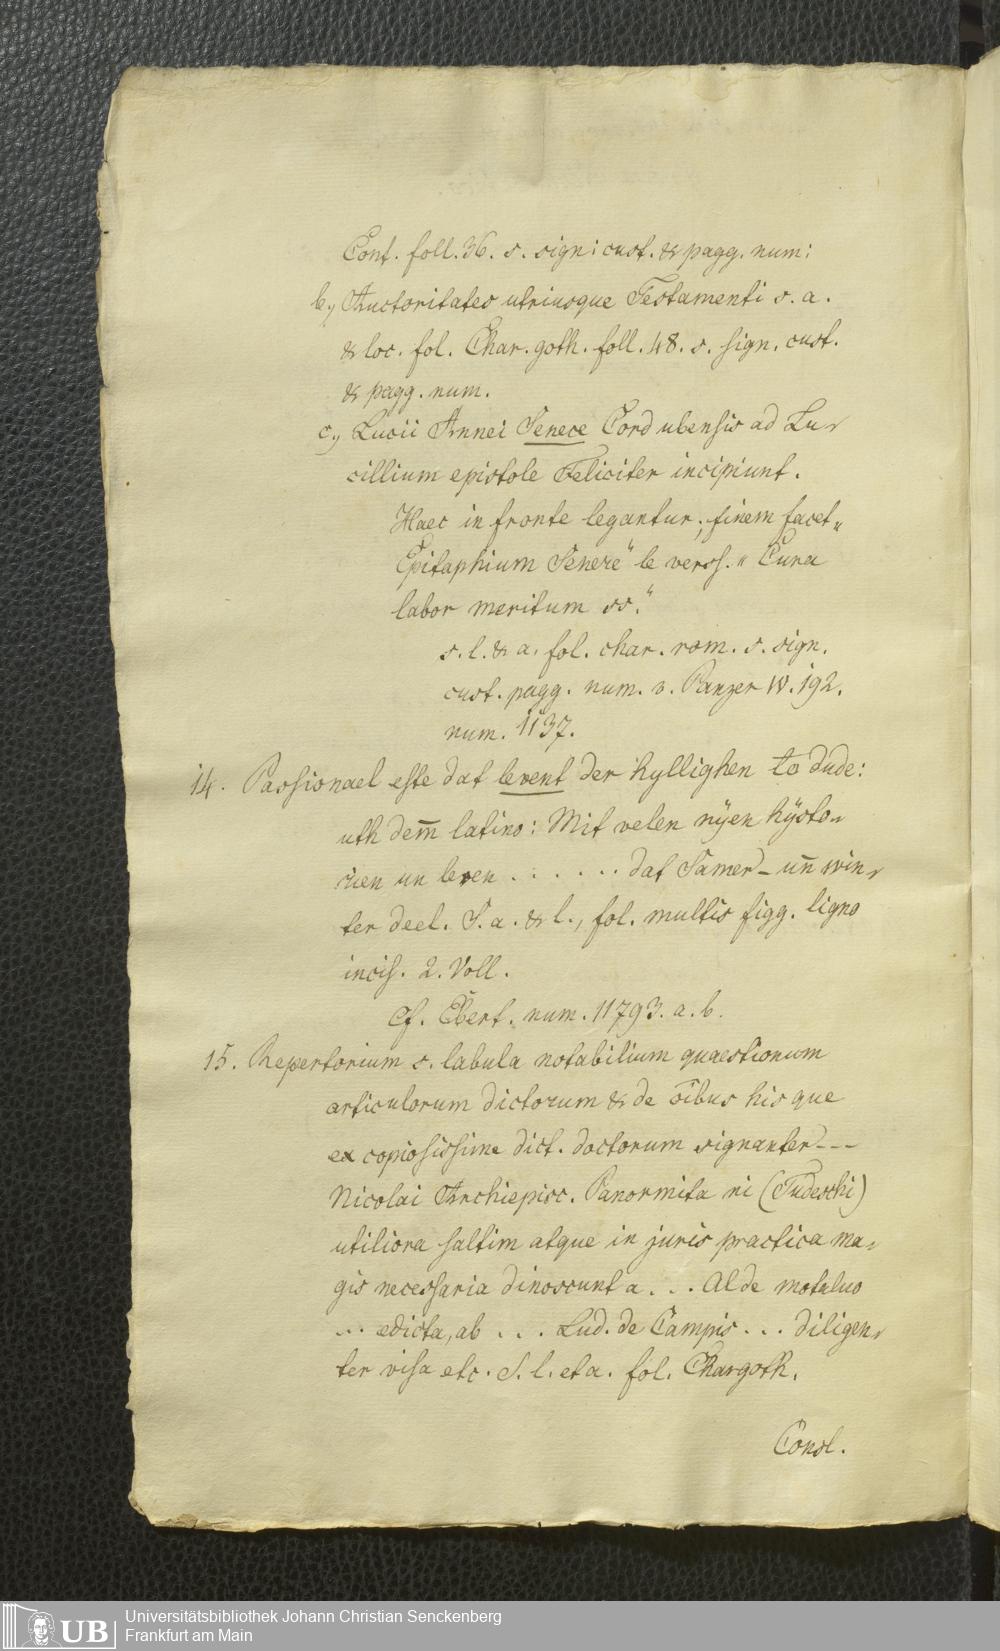 Cont. foll. 36. s. sign: cust. & pagg. num:
b., Auctoritates utriusque Testamenti s. a.
& loc. fol. Char. goth. foll. 48. s. sign. cust.
& pagg. num.
c., Lucii Annei Senece Cordubensis ad Lu-
cillium epistole Feliciter incipiunt.
Haec in fronte legantur; finem facet „
Epitaphium Senece“ le verss. „ Cura
labor meritum ss.“
s. l. & a. fol. char. rom. s. sign.
cust. pagg. num. v. Panzer IV. 192.
num. 1137.
14. Passionael efte dat levent der hyllighen to dude:
uth dem̄ latino: Mit velen nÿen hÿsto-
rien un leven . . . . . . dat Samer- un̄ win-
ter deel. S. a. & l., fol. multis figg. ligno
incis. 2. Voll.
Cf. Ebert. num. 11793. a. b.
15. Repertorium s. tabula notabilium quaestionum
articulorum dictorum & de oībus his que
ex copiosissime dict. doctorum signanter - - -
Nicolai Archiepisc. Panormita ni (Tudeschi)
utiliora saltim atque in juris practica ma-
gis necessaria dinoscunt a . . . Alde motaluo
... edicta, ab . . . Lud. de Campis . . . diligen-
ter visa etc. S. l. et a. fol. Char goth.
Consl.
Universitätsbibliothek Johann Christian Senckenberg
UB Frankfurt am Main